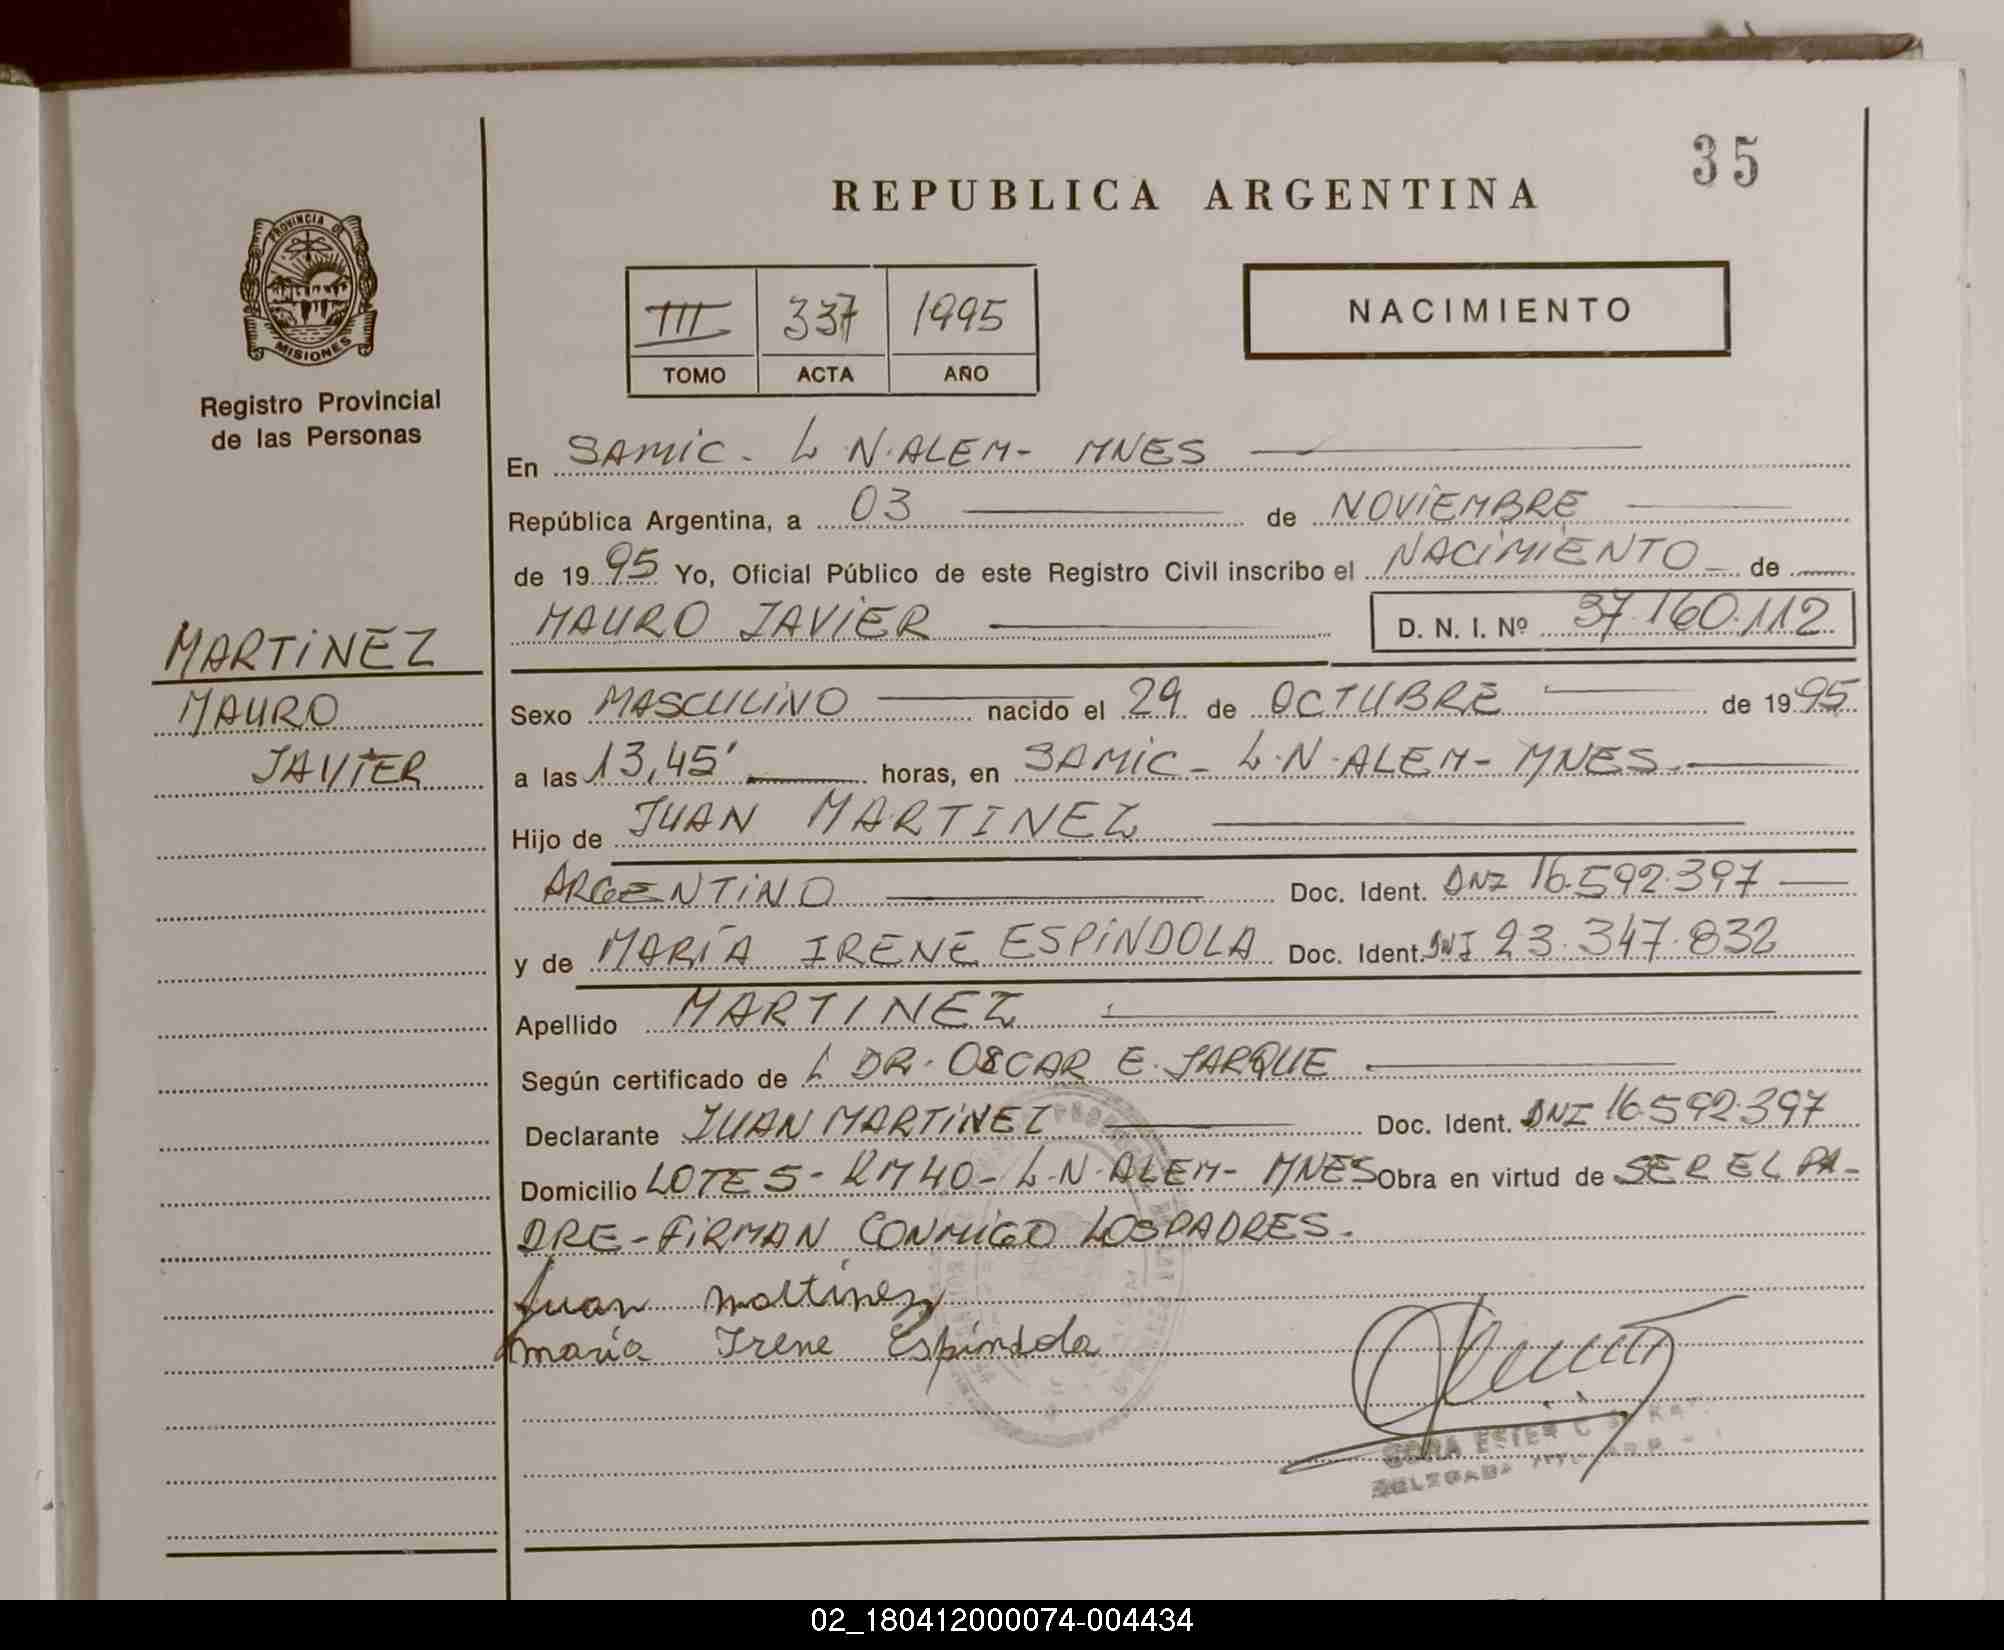 35
REPUBLICA ARGENTINA
PROVINCIA DE
MISIONES
Registro Provincial
de las Personas
III 337 1995
TOMO ACTA AÑO
NACIMIENTO
En SAMIC - L N. ALEM - MNES
República Argentina, a 03 de NOVIEMBRE
de 19 95 Yo, Oficial Público de este Registro Civil inscribo el NACIMIENTO de
MAURO JAVIER D. N. I. Nº 37.160.112
MARTINEZ
MAURO
JAVIER
Sexo MASCULINO nacido el 29 de OCTUBRE de 19 95
a las 13,45' horas, en SAMIC - L.N. ALEM - MNES.
Hijo de JUAN MARTINEZ
ARGENTINO Doc. Ident. DNI 16.592.397
y de MARÍA IRENE ESPINDOLA Doc. Ident. DNI 23.347.832
Apellido MARTINEZ
Según certificado de L DR. OSCAR E. JARQUE
Declarante JUAN MARTINEZ Doc. Ident. DNI 16.592.397
Domicilio LOTE 5 - KM 40 - L.N. ALEM - MNES Obra en virtud de SER EL PA-
DRE - FIRMAN CONMIGO LOS PADRES.
Juan Martinez
maria Irene Espíndola
ESTER C
DELEGADA
02_180412000074-004434